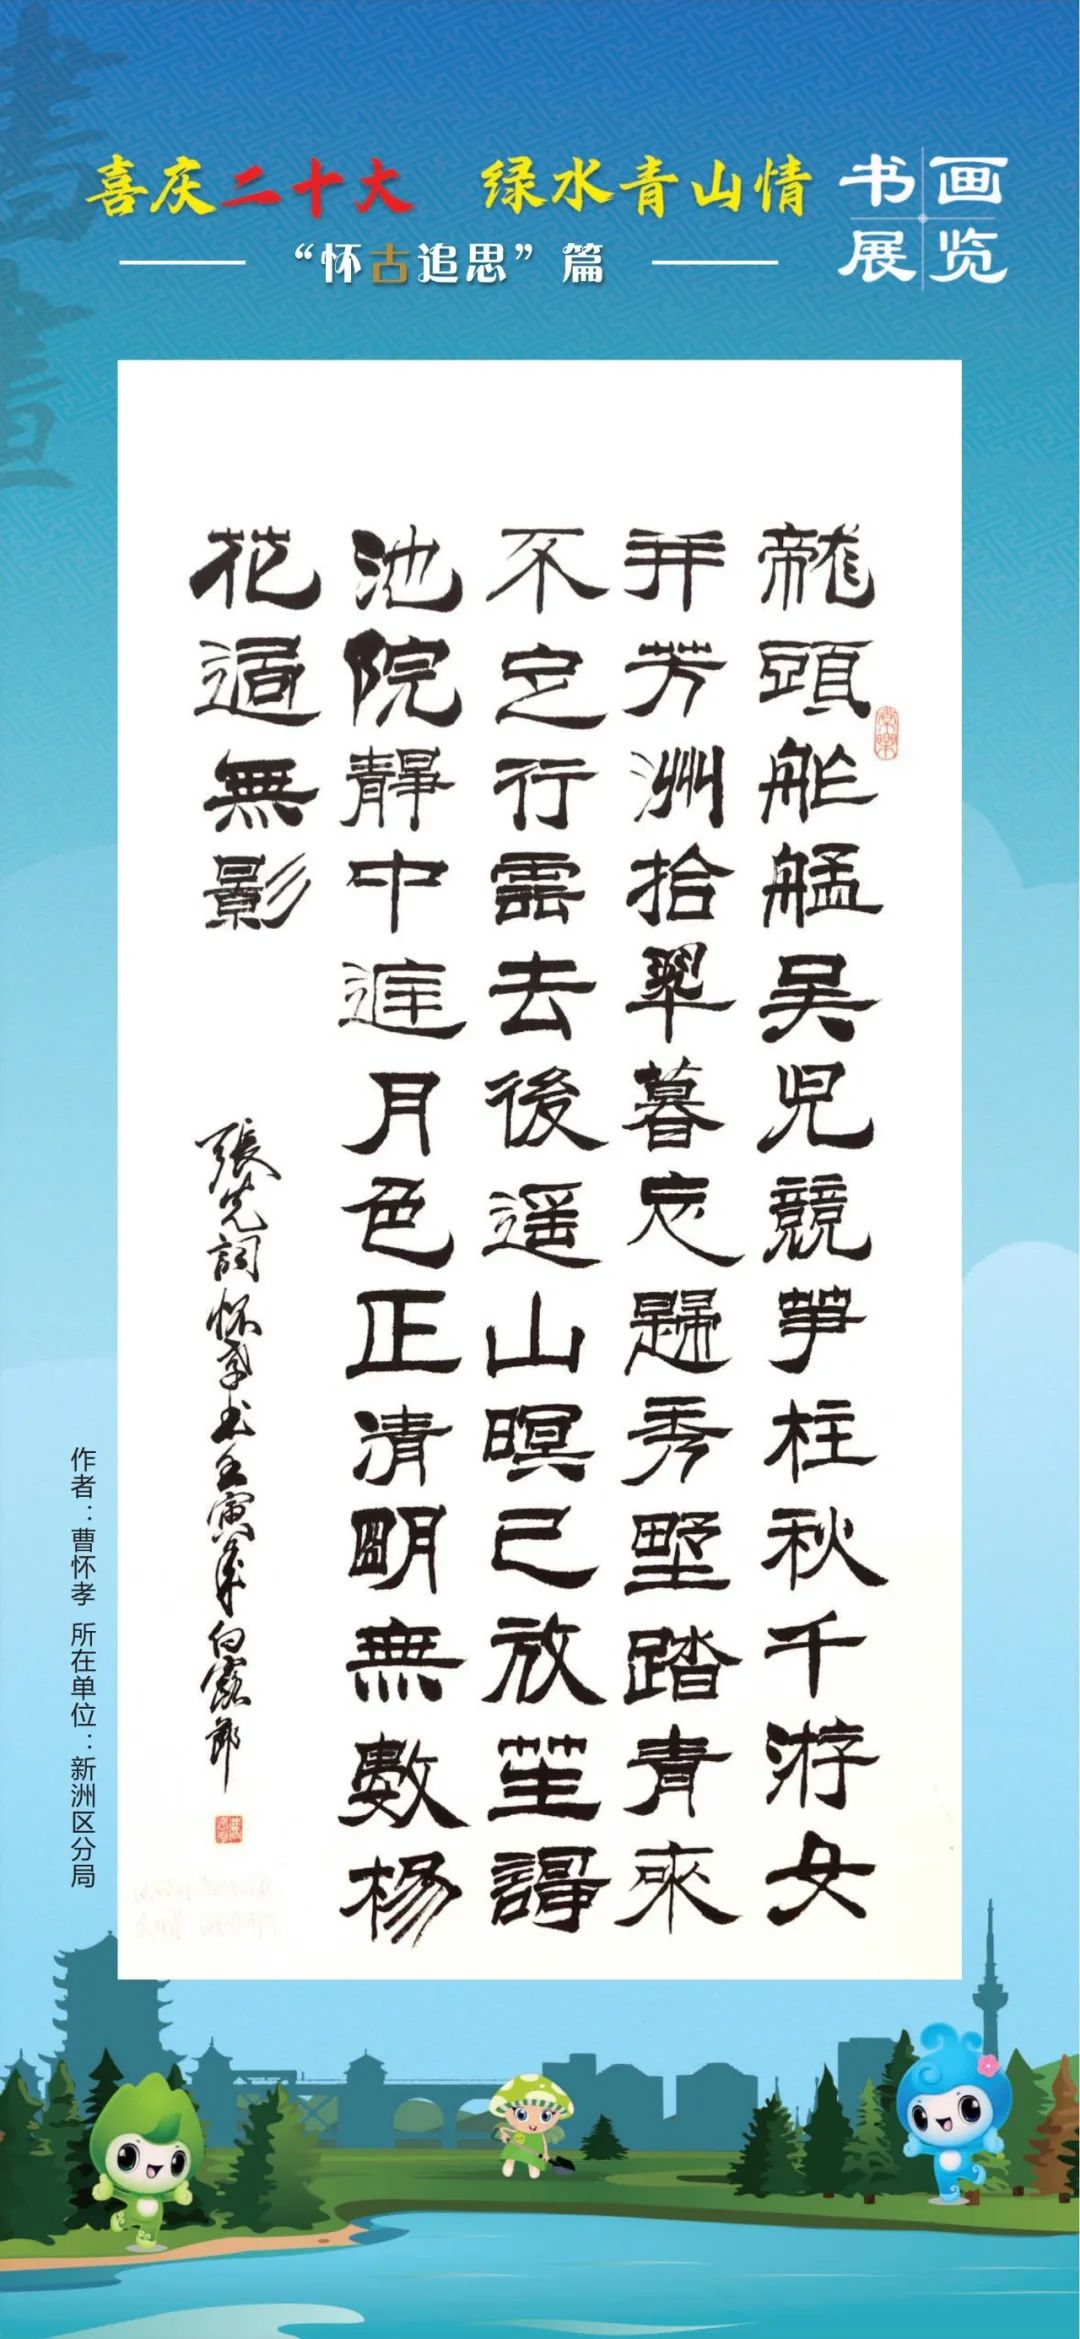 喜庆二十大 绿水青山情
书画展览
“怀古追思”篇
龍頭舴艋吴兒競笋柱秋千游女
并芳洲拾翠暮忘歸秀墅踏青來
不定行雲去後遥山暝已放笙謌
池院靜中庭月色正清明無數楊
花過無影
張先詞怀孝书壬寅年白露節
作者：曹怀孝 所在单位：新洲区分局